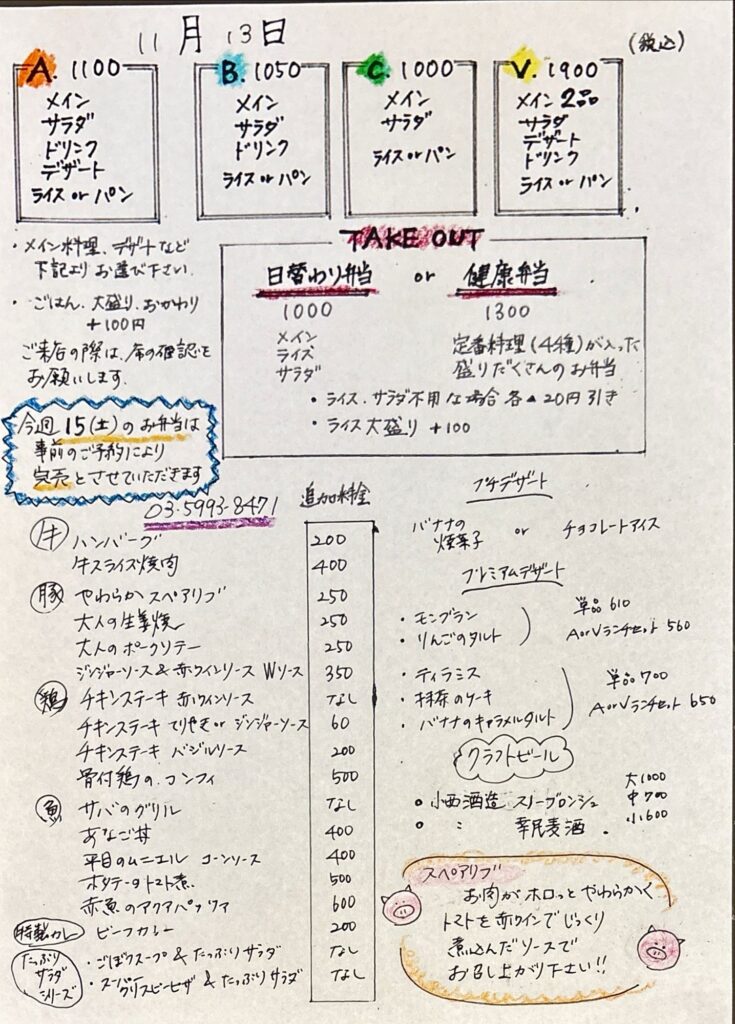 11月13日
(税込)
A. 1100
メイン
サラダ
ドリンク
デザート
ライス or パン
B. 1050
メイン
サラダ
ドリンク
ライス or パン
C. 1000
メイン
サラダ
ライス or パン
V. 1900
メイン 2品
サラダ
デザート
ドリンク
ライス or パン
・メイン料理、デザートなど
下記よりお選び下さい。
・ごはん、大盛り、おかわり
+100円
ご来店の際は、席の確認を
お願いします。
TAKE OUT
日替わり弁当 or 健康弁当
1000
メイン
ライス
サラダ
1300
定番料理(4種)が入った
盛りだくさんのお弁当
・ライス、サラダ不用な場合 各▲20円引き
・ライス大盛り +100
今週 15(土)のお弁当は
事前のご予約により
完売とさせていただきます
03-5993-8471
追加料金
牛 ハンバーグ 200
牛スライス焼肉 400
豚 やわらかスペアリブ 250
大人の生姜焼 250
大人のポークソテー 250
ジンジャーソース&赤ワインソース Wソース 350
鶏 チキンステーキ 赤ワインソース なし
チキンステーキ てりやき or ジンジャーソース 60
チキンステーキ バジルソース 200
骨付鶏の、コンフィ 500
魚 サバのグリル なし
あなご丼 400
平目のムニエル コーンソース 400
ホタテのトマト煮 500
赤魚のアクアパッツァ 600
特製カレー ビーフカレー 200
たっぷり
サラダ
シリーズ
・ごぼうスープ & たっぷりサラダ なし
・スーパー
クリスピーピザ & たっぷりサラダ なし
プチデザート
バナナの
焼菓子 or チョコレートアイス
プレミアムデザート
・モンブラン
・りんごのタルト
単品 610
A or Vランチセット 560
・ティラミス
・抹茶のケーキ
・バナナのキャラメルタルト
単品 700
A or Vランチセット 650
クラフトビール
小西酒造 スノーブロンシュ
〃 幸民麦酒
大1000
中700
小600
スペアリブ
お肉がホロっとやわらかく
トマトを赤ワインでじっくり
煮込んだソースで
お召し上がり下さい!!